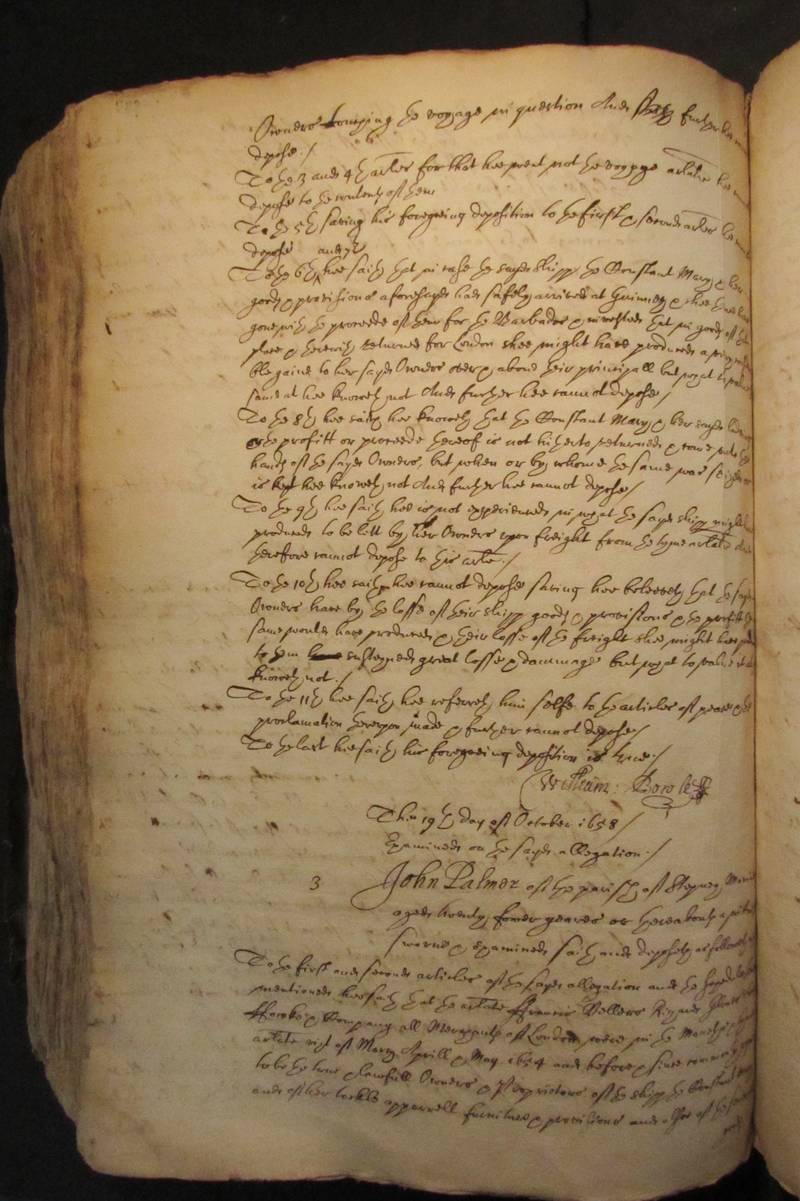 Owners dureing the voyage in question And further hee
depose./
To the 3 and 4th arlers for that hee went not the voyage arlate hee
depose to the contents of them
To the 5th saving his foregoeing deposition to the first & second arler hee
depose and 7th
To the 6th hee saith that in case the sayd shipp the Constant Mary & her
goods & provisions aforesayd had safely arrived at Guinney & shee had
gone with the proceede of them for the Barbados & invested that in goods of that
place & therewith returned for London shee might have produced a
ble gaine to her sayd Owners over & above their principall but what
same at hee knoweth not And further hee cannot depose/
To the 8th hee saith hee knoweth that the Constant Mary & her sayd
or the profitt or proceede thereof is not hitherto returned & come into the
hands of the sayd Owners, but when or by whome the same was
is kept hee knoweth not And further hee cannot depose/
To the 9th hee saith hee is not experienced in what the sayd shipp might
produced to be lett by her Owners upon freight from the tyme arlate and
therefore cannot depose to this arle./
To the 10th hee saith hee cannot depose saving hee beleeveth that the sayd
Owners have by the losse of their shipp goods & provisions & the profitt the
same would have produced & their losse of the freight shee might have
to them susteyned great losse & dammage but what to value it at
knoweth not./
To the 11th hee saith hee referreth him selfe to the articles of peace & the
proclamation thereupon made & further cannot depose/
To the last hee saith his foregoeing deposition is true./
William: Bowle
This 19th day of October 1658/
Examined on the sayd allegation./
3 John Palmer of the parish of Stepney
aged twenty fower yeares or thereabouts a
sworne & examined saith and deposeth as followeth
To the first and second articles of the sayd allegation and the
mentioned hee saith that the arlate ffrancis Vellers Richard
& Company all Merchants of London were in the Moneths
arlate vizt of March Aprill & May 1654 and before & since
to be the true & lawfull Owners & Proprietors of the shipp the Constant
and of her tackle apparrell furniture & provisions and also of the